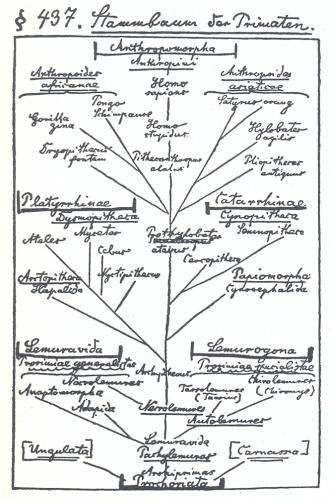 § 437. Stammbaum der Primaten.
Anthropomorpha
Anthropini
Anthropoides
africanae
Homo
sapiens
Anthropoides
asiaticae
Pongo
Schimpanse
Satyrus orang
Gorilla
gina
Homo
stupidus
Hylobates
agilis
Dryopithecus
fontani
Pithecanthropus
alalus
Pliopithecus
antiquus
Platyrrhinae
Dysmopitheca
Catarrhinae
Cynopitheca
Ateles
Mycetes
Prothylobates
atavus
Semnopithecus
Cebus
Cercopithecus
Arctopitheca
Hapalida
Nyctipithecus
Papiomorpha
Cynocephalida
Lemuravida
Prosimiae generalistae
Lemurogona
Prosimiae specialistae
Archipithecus
Necrolemures
Chirolemures
(Chiromys)
Anaptomorpha
Tarsolemures
(Tarsius)
Adapida
Necrolemures
Autolemures
Lemuravida
Pachylemures
[Ungulata]
[Carnassia]
Archiprimas
Prochoriata